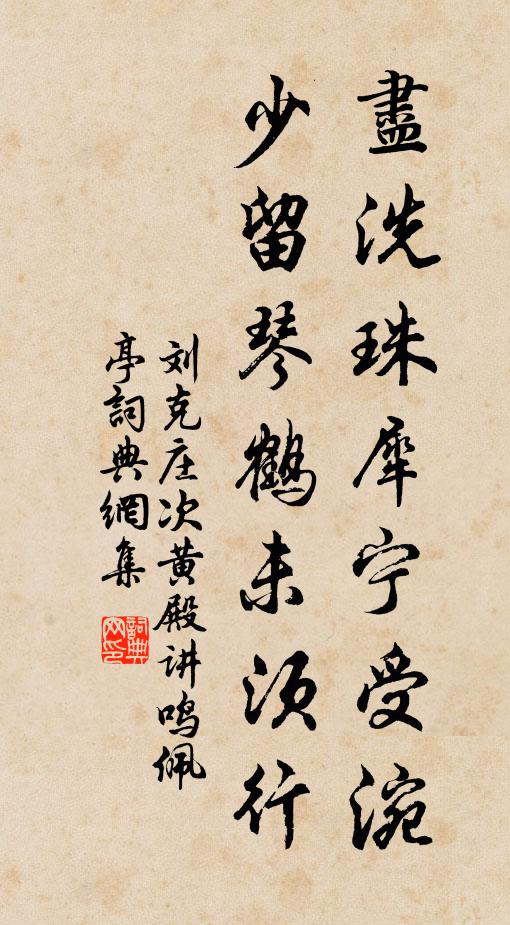 盡洗珠犀宁受涴
少留琴鶴未須行
刘克庄次黄殿讲鸣佩
亭詞典網集
詞典网印